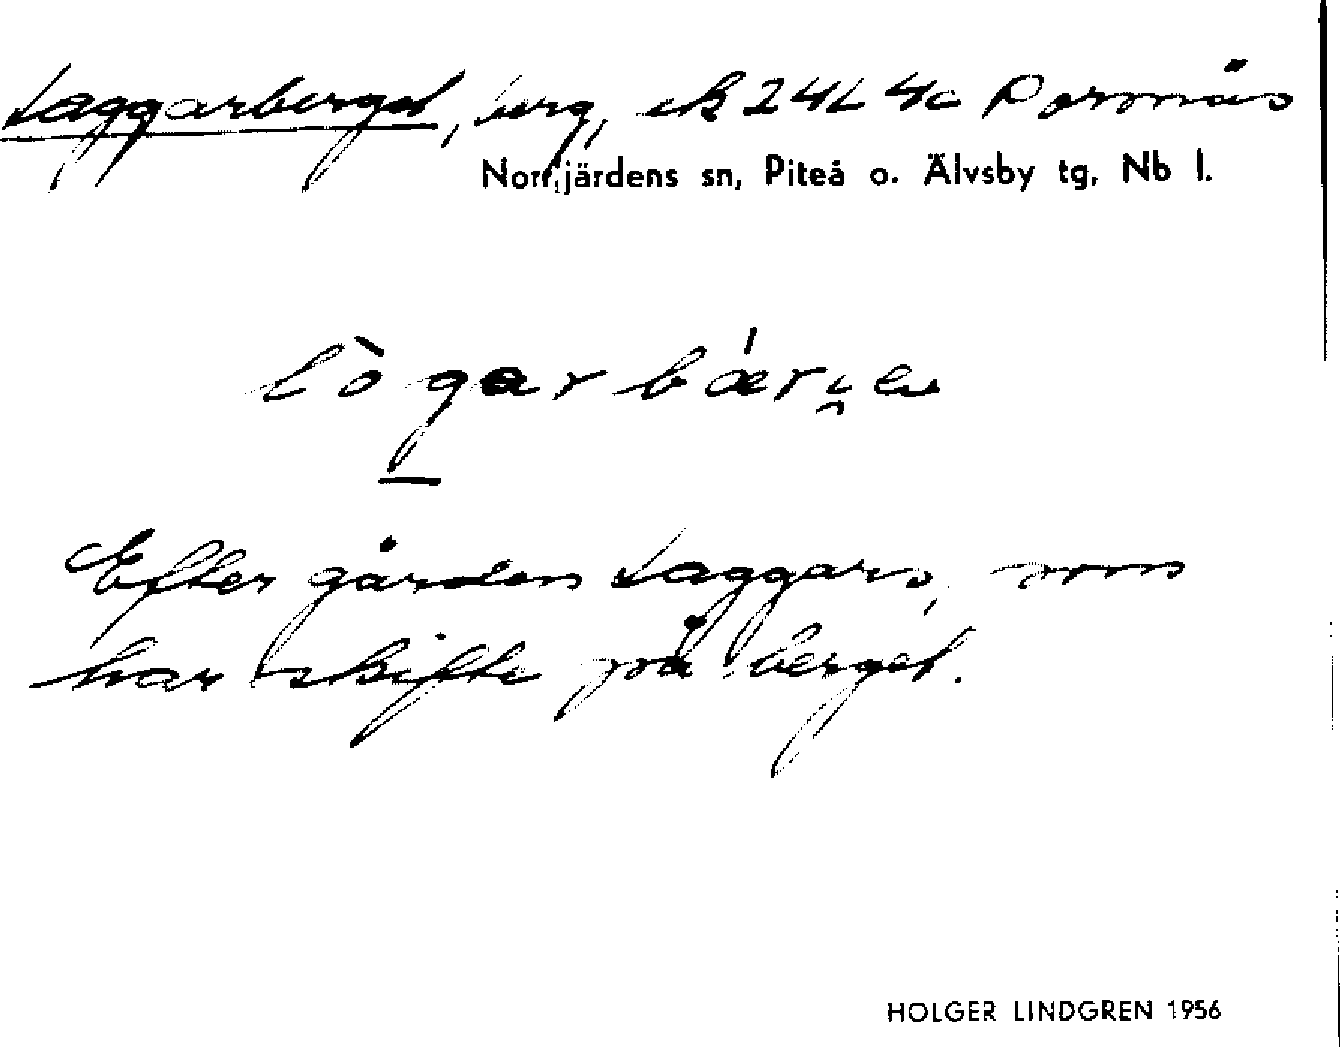 Laggarberget, berg, ek 24L 4c Porsnäs
Norrfjärdens sn, Piteå o. Älvsby tg, Nb l.
Efter gården Laggars, som
har skifte på berget.
HOLGER LINDGREN 1956